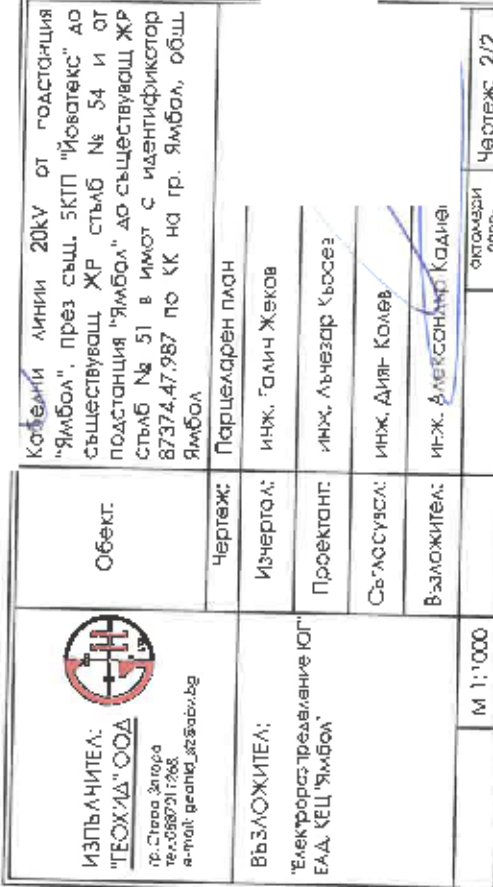 ИЗПЪЛНИТЕЛ:
"ГЕОХИД" ООД
гр. Стара Загора
e-mail: geohid_sz@abv.bg
ВЪЗЛОЖИТЕЛ:
"Електроразпределение ЮГ"
ЕАД, КЕЦ "Ямбол"
М 1:1000
Обект:
Кабелни линии 20kV от подстанция
"Ямбол", през същ. БКТП "Йоватекс" до
съществуващ ЖР стълб № 54 и от
подстанция "Ямбол" до съществуващ ЖР
стълб № 51 в имот с идентификатор
87374.47.987 по КК на гр. Ямбол, общ.
Ямбол
Чертеж: Парцеларен план
Изчертал: инж. Галин Жеков
Проектант: инж. Лъчезар Кьосев
Съгласувал: инж. Диян Колев
Възложител: инж. Александър Кадиев
октомври
Чертеж: 2/2